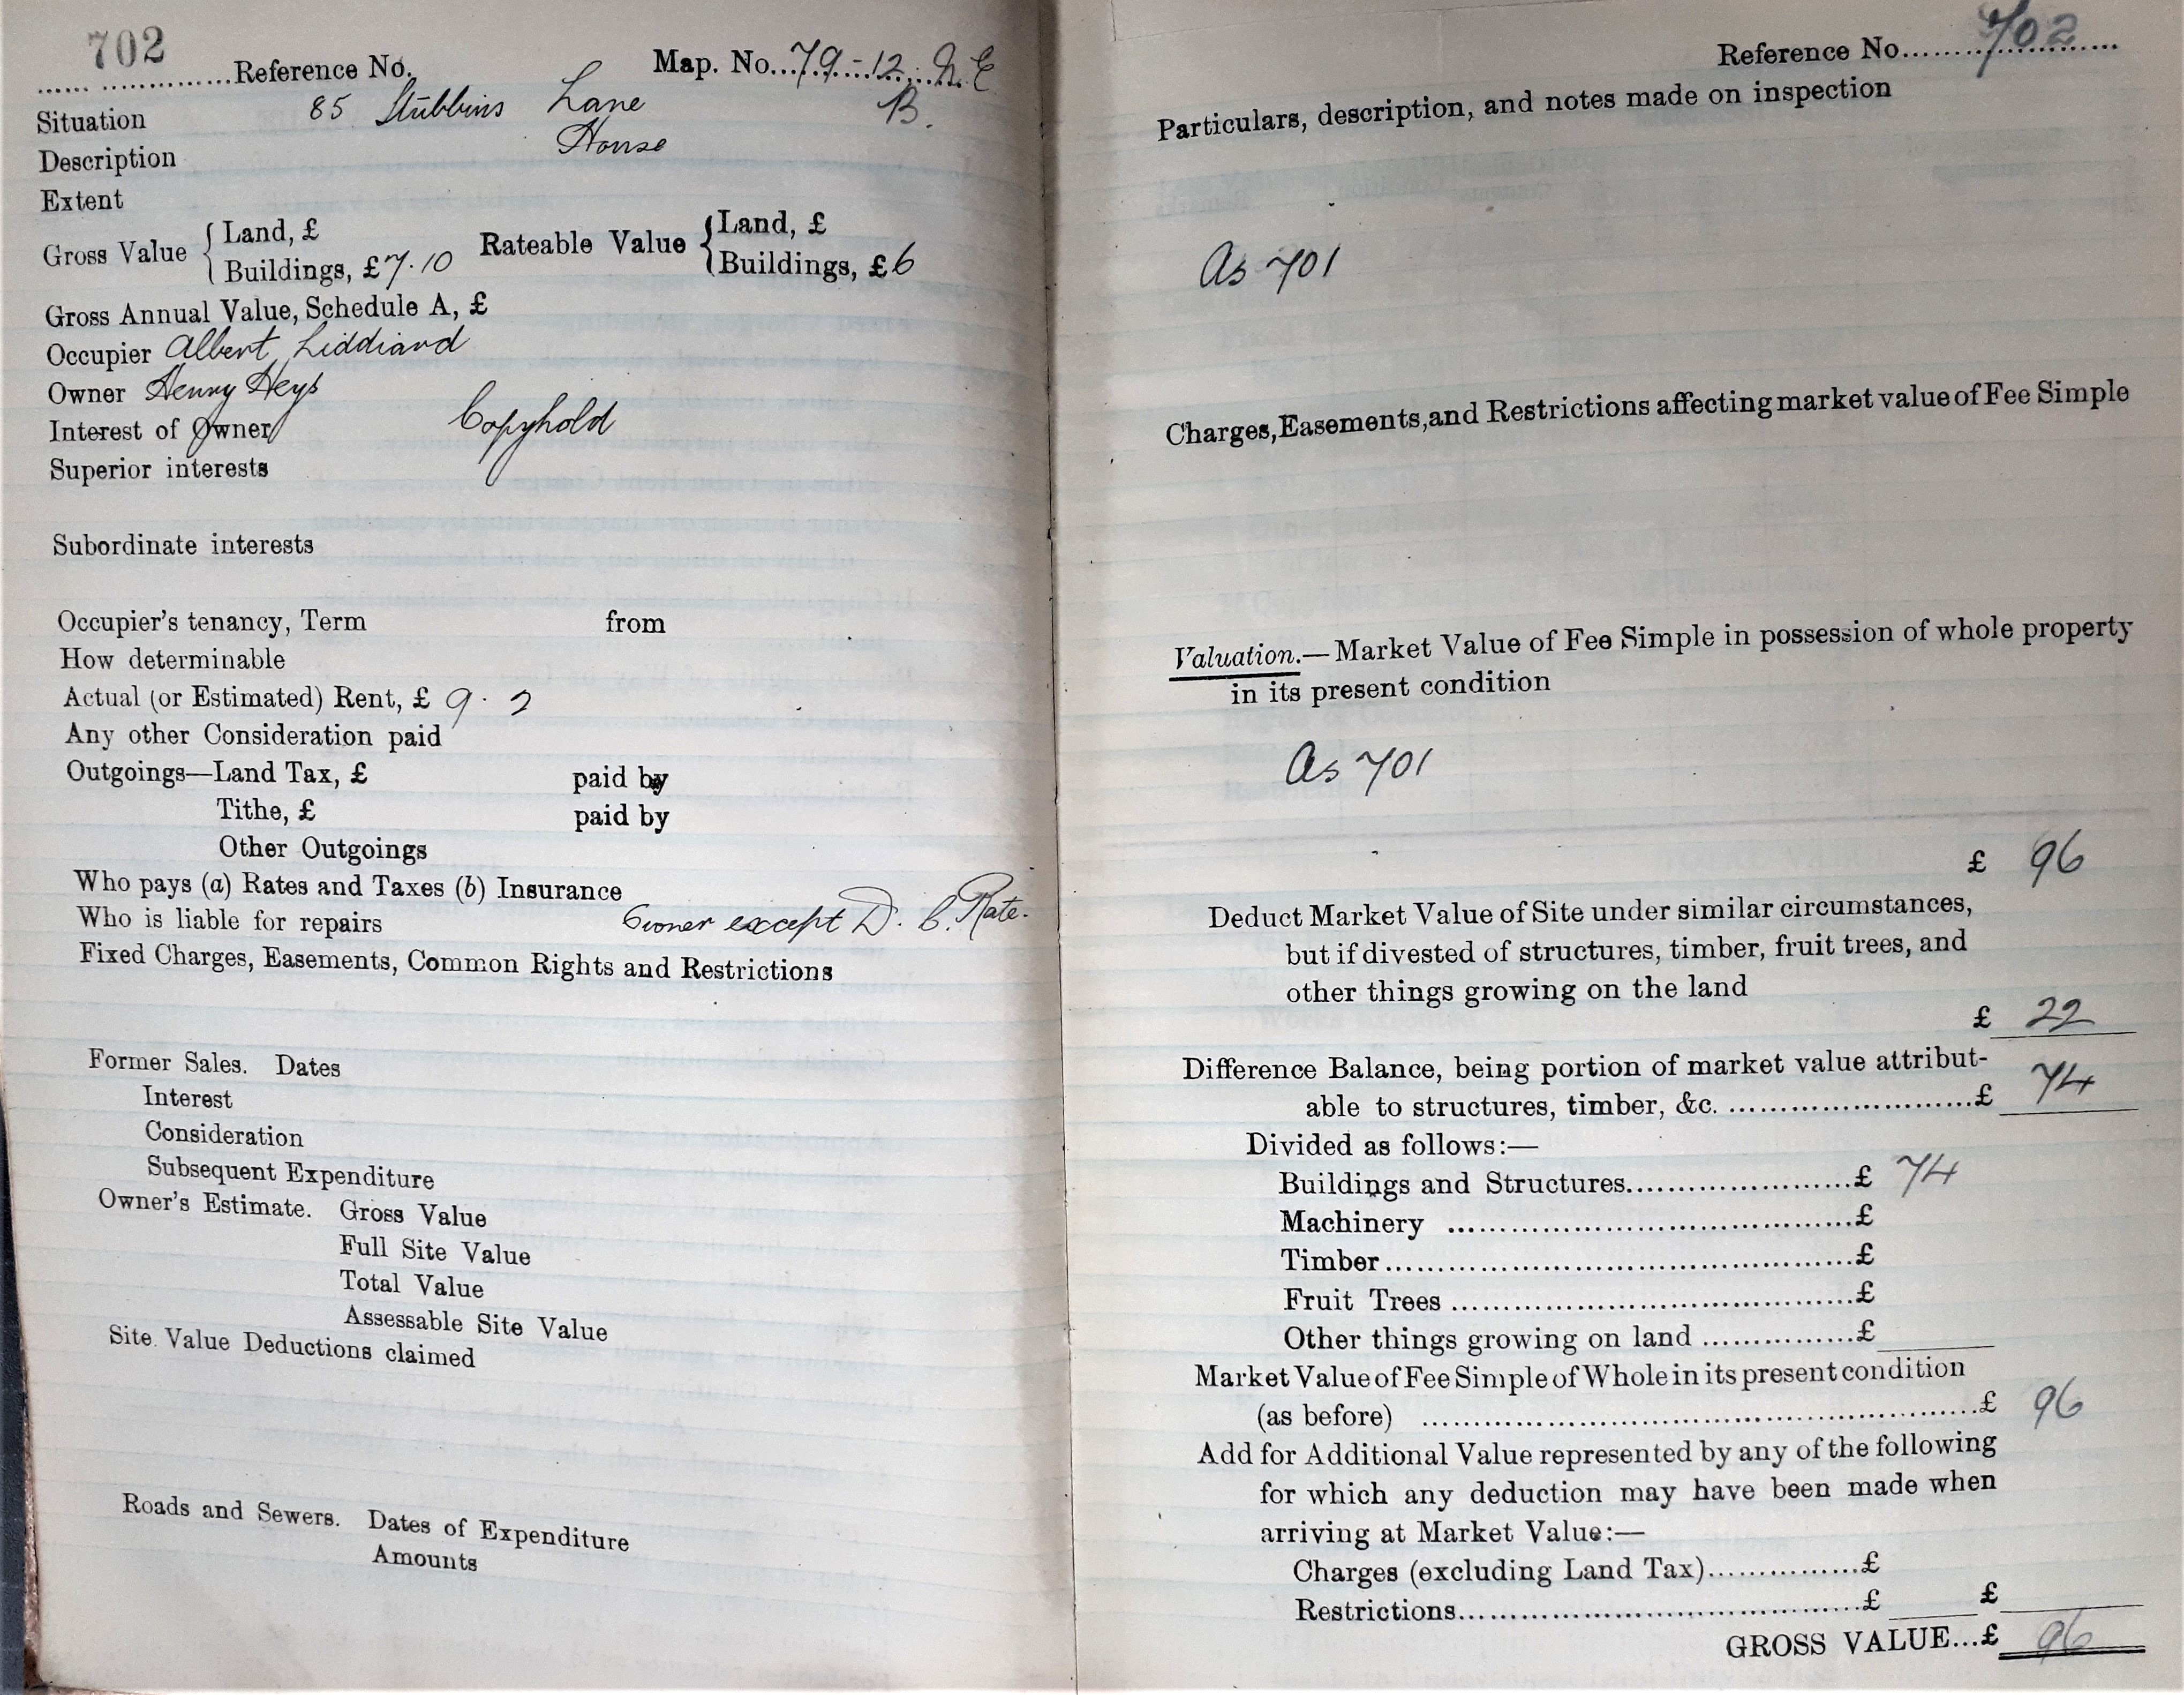 702
Reference No.
Map. No. 79-12. N.E
B.
Situation 85 Stubbins Lane
Description House
Extent
Gross Value { Land, £
Buildings, £7.10
Rateable Value { Land, £
Buildings, £6
Gross Annual Value, Schedule A, £
Occupier Albert Liddiard
Owner Henry Heys
Interest of Owner Copyhold
Superior interests
Subordinate interests
Occupier's tenancy, Term from
How determinable
Actual (or Estimated) Rent, £ 9. 2
Any other Consideration paid
Outgoings—Land Tax, £ paid by
Tithe, £ paid by
Other Outgoings
Who pays (a) Rates and Taxes (b) Insurance
Who is liable for repairs Owner except D. C. Rate.
Fixed Charges, Easements, Common Rights and Restrictions
Former Sales. Dates
Interest
Consideration
Subsequent Expenditure
Owner's Estimate. Gross Value
Full Site Value
Total Value
Assessable Site Value
Site Value Deductions claimed
Roads and Sewers. Dates of Expenditure
Amounts
Reference No. 702
Particulars, description, and notes made on inspection
As 701
Charges, Easements, and Restrictions affecting market value of Fee Simple
Valuation.—Market Value of Fee Simple in possession of whole property
in its present condition
As 701
£ 96
Deduct Market Value of Site under similar circumstances,
but if divested of structures, timber, fruit trees, and
other things growing on the land
£ 22
Difference Balance, being portion of market value attribut-
able to structures, timber, &c. ........................£ 74
Divided as follows:—
Buildings and Structures........................£ 74
Machinery ........................£
Timber........................£
Fruit Trees ........................£
Other things growing on land ................£
Market Value of Fee Simple of Whole in its present condition
(as before) ........................£ 96
Add for Additional Value represented by any of the following
for which any deduction may have been made when
arriving at Market Value:—
Charges (excluding Land Tax)................£
Restrictions........................£ £
GROSS VALUE...£ 96